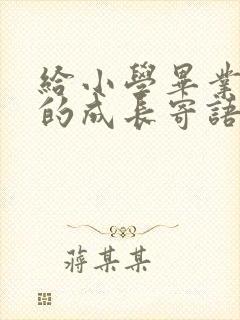 給小學畢業
的成長寄語
蔣某某